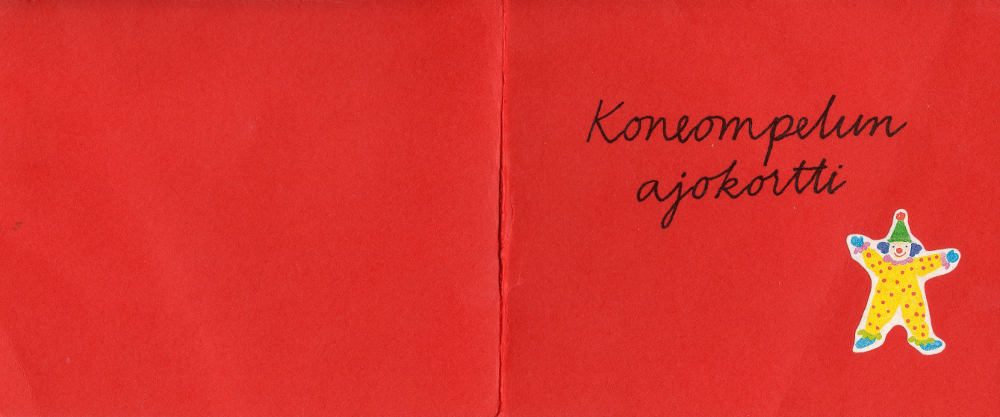 Koneompelun
ajokortti